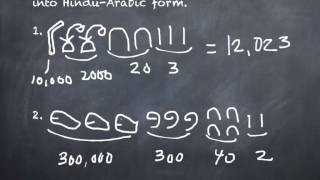 into Hindu-Arabic form.
1. = 12,023
10,000 2000 20 3
2.
300,000 300 40 2